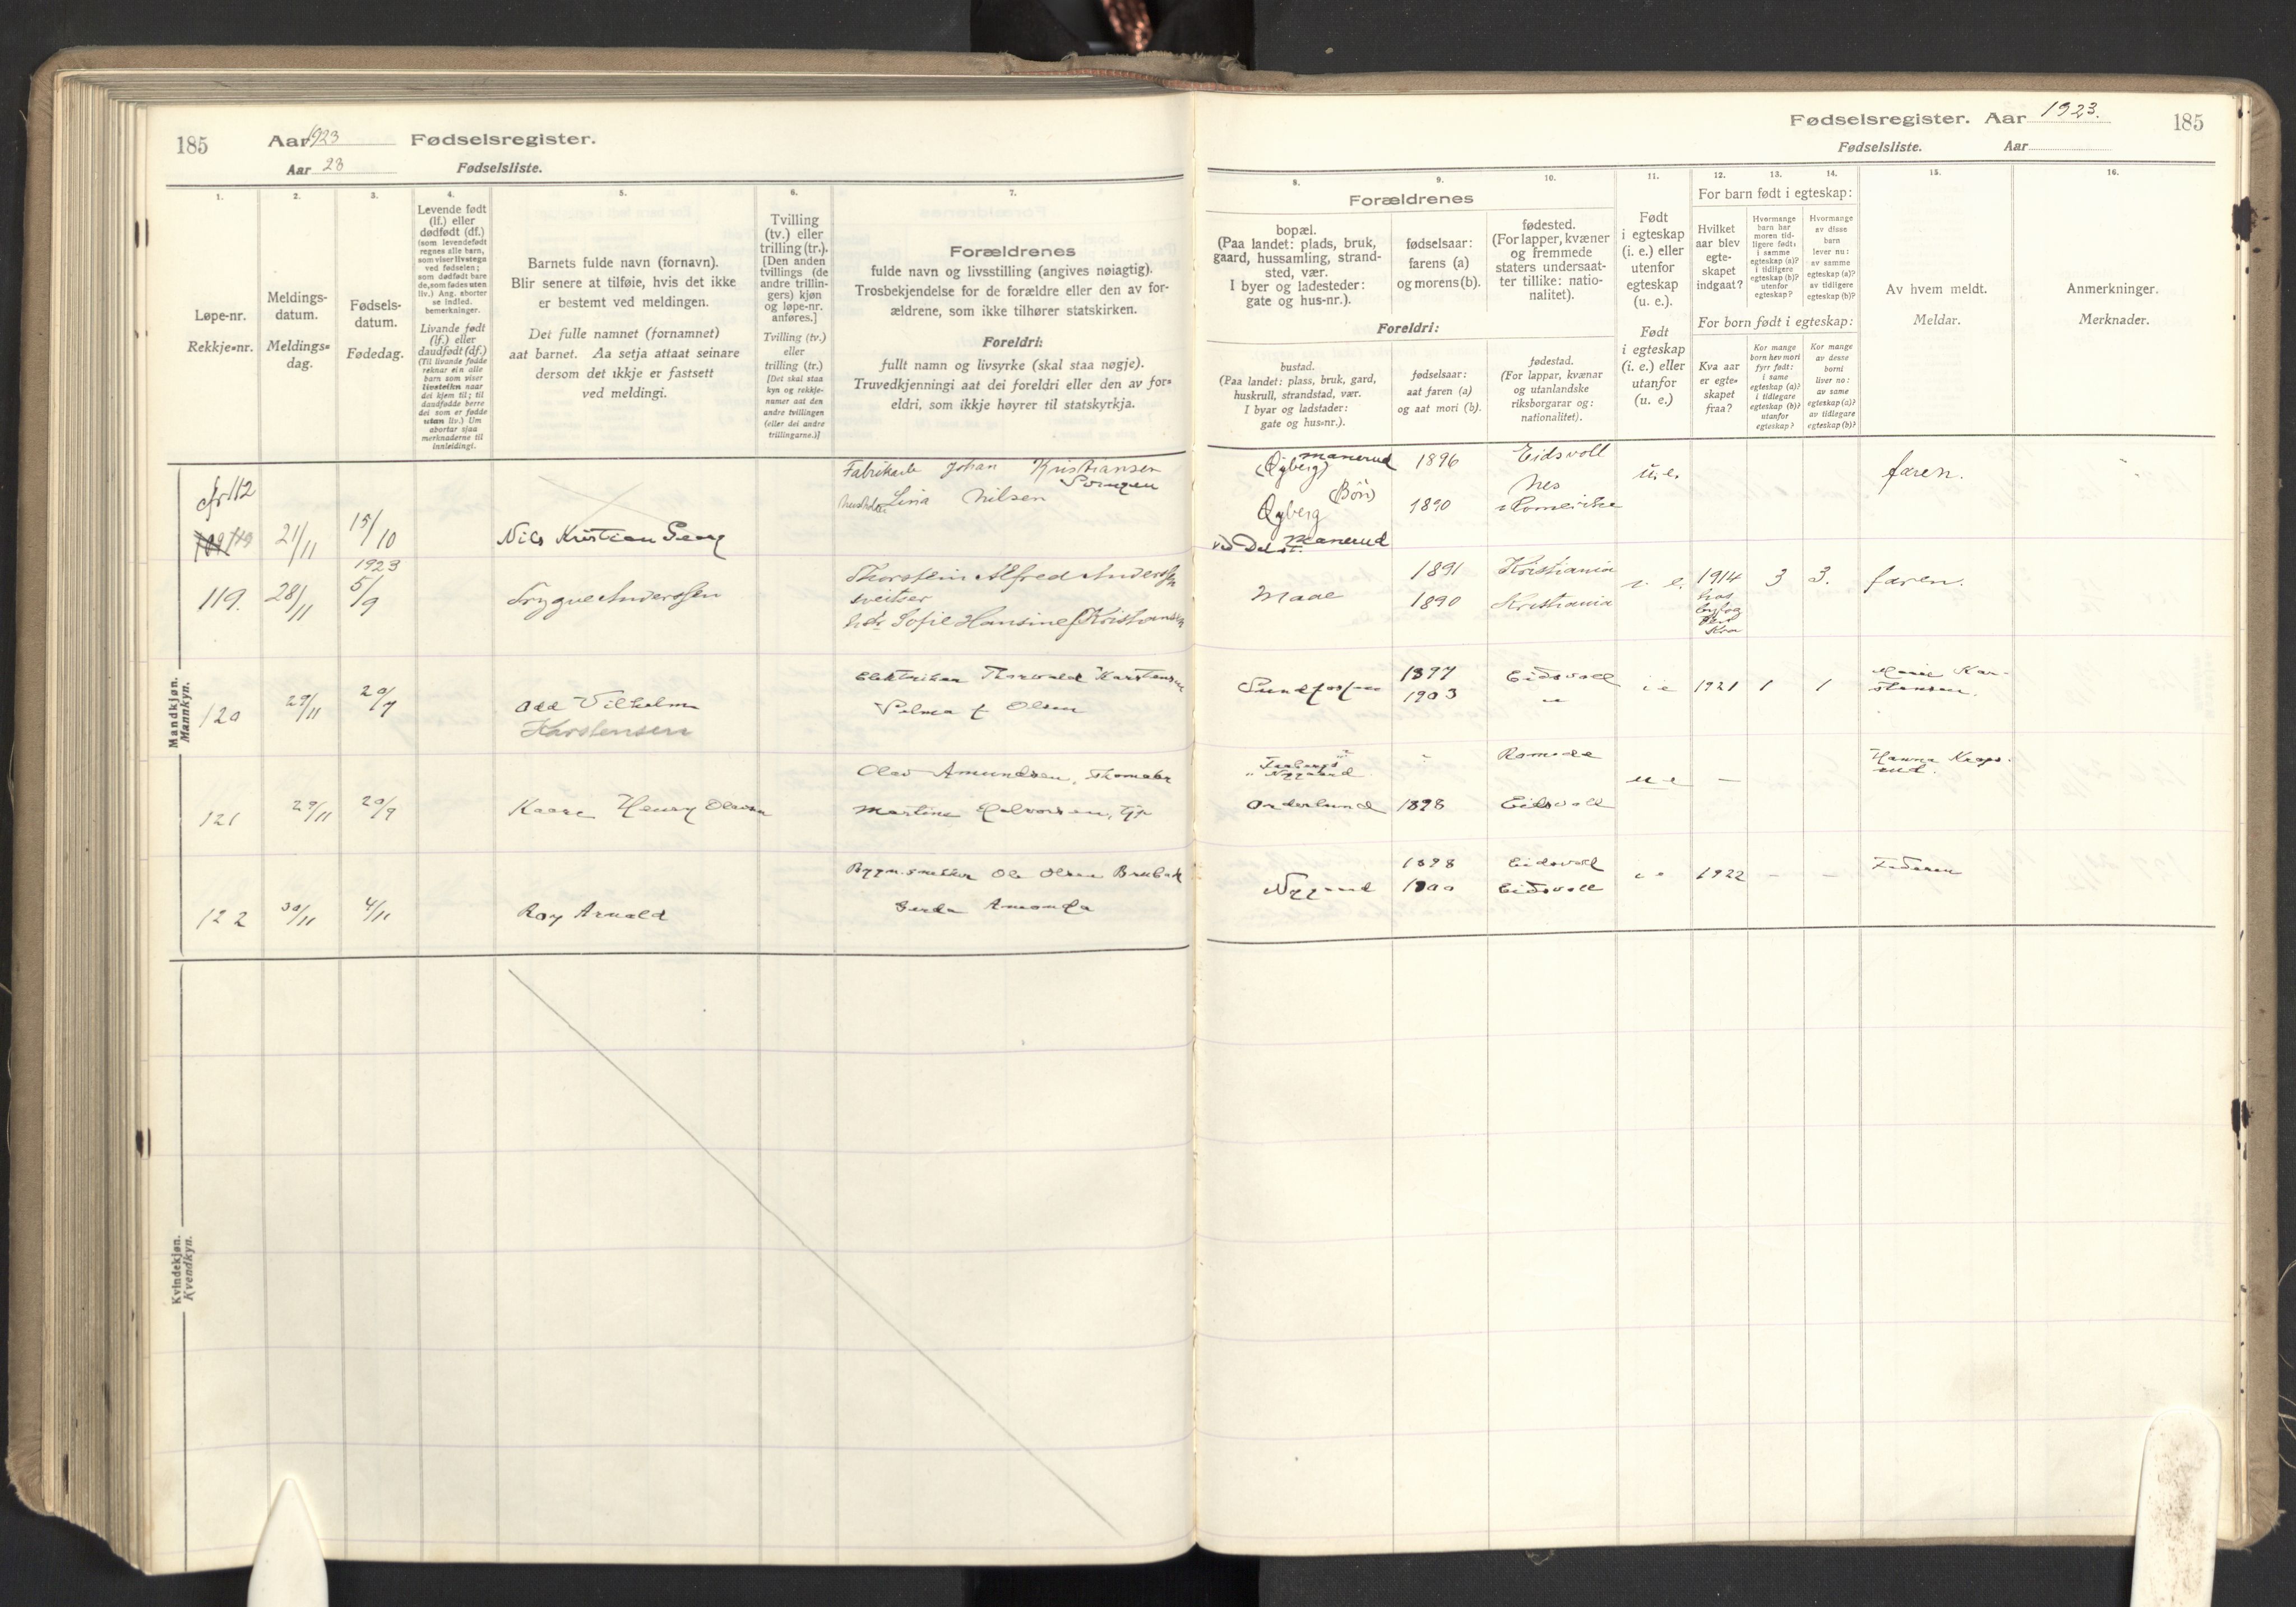 185
Aar 1923 Fødselsregister.
Aar 23 Fødselsliste.
1.
Løpe-nr.
Rekkje-nr.
2.
Meldings-
datum.
Meldings-
dag.
3.
Fødsels-
datum.
Fødedag.
4.
Levende født
(lf.) eller
dødfødt (df.)
(som levendefødt
regnes alle barn,
som viser livstegn
ved fødselen;
som dødfødt bare
de, som fødes uten
liv.) Ang. aborter
se indled.
bemerkninger.
Livande født
(lf.) eller
daudfødt (df.)
(Til livande fødde
reknar ein alle
barn som viser
livsteikn naar
dei kjem til; til
daudfødde berre
dei som er fødde
utan liv.) Um
abortar sjaa
merknaderne til
innleidingi.
5.
Barnets fulde navn (fornavn).
Blir senere at tilføie, hvis det ikke
er bestemt ved meldingen.
Det fulle namnet (fornamnet)
aat barnet. Aa setja attaat seinare
dersom det ikkje er fastsett
ved meldingi.
6.
Tvilling
(tv.) eller
trilling (tr.).
[Den anden
tvillings (de
andre trillin-
gers) kjøn
og løpe-nr.
anføres.]
Tvilling (tv.)
eller
trilling (tr.)
[Det skal staa
kyn og rekkje-
numer aat den
andre tvillingen
(eller dei andre
trillingarne.)]
7.
Forældrenes
fulde navn og livsstilling (angives nøiagtig).
Trosbekjendelse for de forældre eller den av for-
ældrene, som ikke tilhører statskirken.
Foreldri:
fullt namn og livsyrke (skal staa nøgje).
Truvedkjenningi aat dei foreldri eller den av for-
eldri, som ikkje høyrer til statskyrkja.
Mandkjøn.
Mannkyn.
cfr 112
21/11
15/10
1923
Nils Kristian Georg
Fabrikarb Johan Kristiansen
Lina Nilsen
119.
28/11
5/9
Trygve Anderssen
Thorstein Alfred Anderssen
sveitser
Sofie Hansine f Kristiansen
120
29/11
20/9
Odd Vilhelm
Karstensen
Elektriker Thorvald Karstensen
Selma f Olsen
121
29/11
20/9
Kaare Henry Olavsen
Olav Amundsen,
Martine Halvorsen, tj.p
122
30/11
4/11
Roy Arnold
Ole Olsen Brubak
Gerda Amanda
Kvindekjøn.
Kvendkyn.
Fødselsregister. Aar 1923.
185
Fødselsliste. Aar
8.
Forældrenes
bopæl.
(Paa landet: plads, bruk,
gaard, hussamling, strand-
sted, vær.
I byer og ladesteder:
gate og hus-nr.).
Foreldri:
bustad.
(Paa landet: plass, bruk, gard,
huskrull, strandstad, vær.
I byar og ladstader:
gate og hus-nr.).
9.
fødselsaar:
farens (a)
og morens (b).
fødselsaar:
aat faren (a)
og aat mori (b).
10.
fødested.
(For lapper, kvæner
og fremmede
staters undersaat-
ter tillike: natio-
nalitet).
fødestad.
(For lappar, kvænar
og utanlandske
riksborgarar og:
nationalitet).
11.
Født
i egteskap
(i. e.) eller
utenfor
egteskap
(u. e.).
Født
i egteskap
(i. e.) eller
utanfor
(u. e.)
12.
13.
14.
For barn født i egteskap:
Hvilket
aar blev
egte-
skapet
indgaat?
Hvormange
barn har
moren tid-
ligere født:
i samme
egteskap (a)?
i tidligere
egteskap (b)?
utenfor
egteskap?
Hvormange
av disse
barn
lever nu:
av samme
egteskap (a)?
av tidligere
egteskap (b)?
For born født i egteskap:
Kva aar
er egte-
skapet
fraa?
Kor mange
born hev mori
fyrr født:
i same
egteskap (a)?
i tidlegare
egteskap (b)?
utanfor
egteskap?
Kor mange
av desse
borni
liver no:
av same
egteskap (a)?
av tidlegare
egteskap (b)?
15.
Av hvem meldt.
Meldar.
16.
Anmerkninger.
Merknader.
Manerud
(Øyberg)
1896
Eidsvoll
u. e.
faren.
(Bøn)
Øyberg
1890
Nes
Romerike
Manerud
Maae
1891
1890
Kristiania
Kristiania
i e.
1914
3
3.
faren.
1897
1903
Eidsvoll
"
i e
1921
1
1
Marie Kar-
stensen.
Nygaard
Romedal
u e
—
Hanna
Orderlund
1898
Eidsvoll
Nygaard
1898
1900
Eidsvoll
Eidsvoll
i e
1922
–
–
Faderen